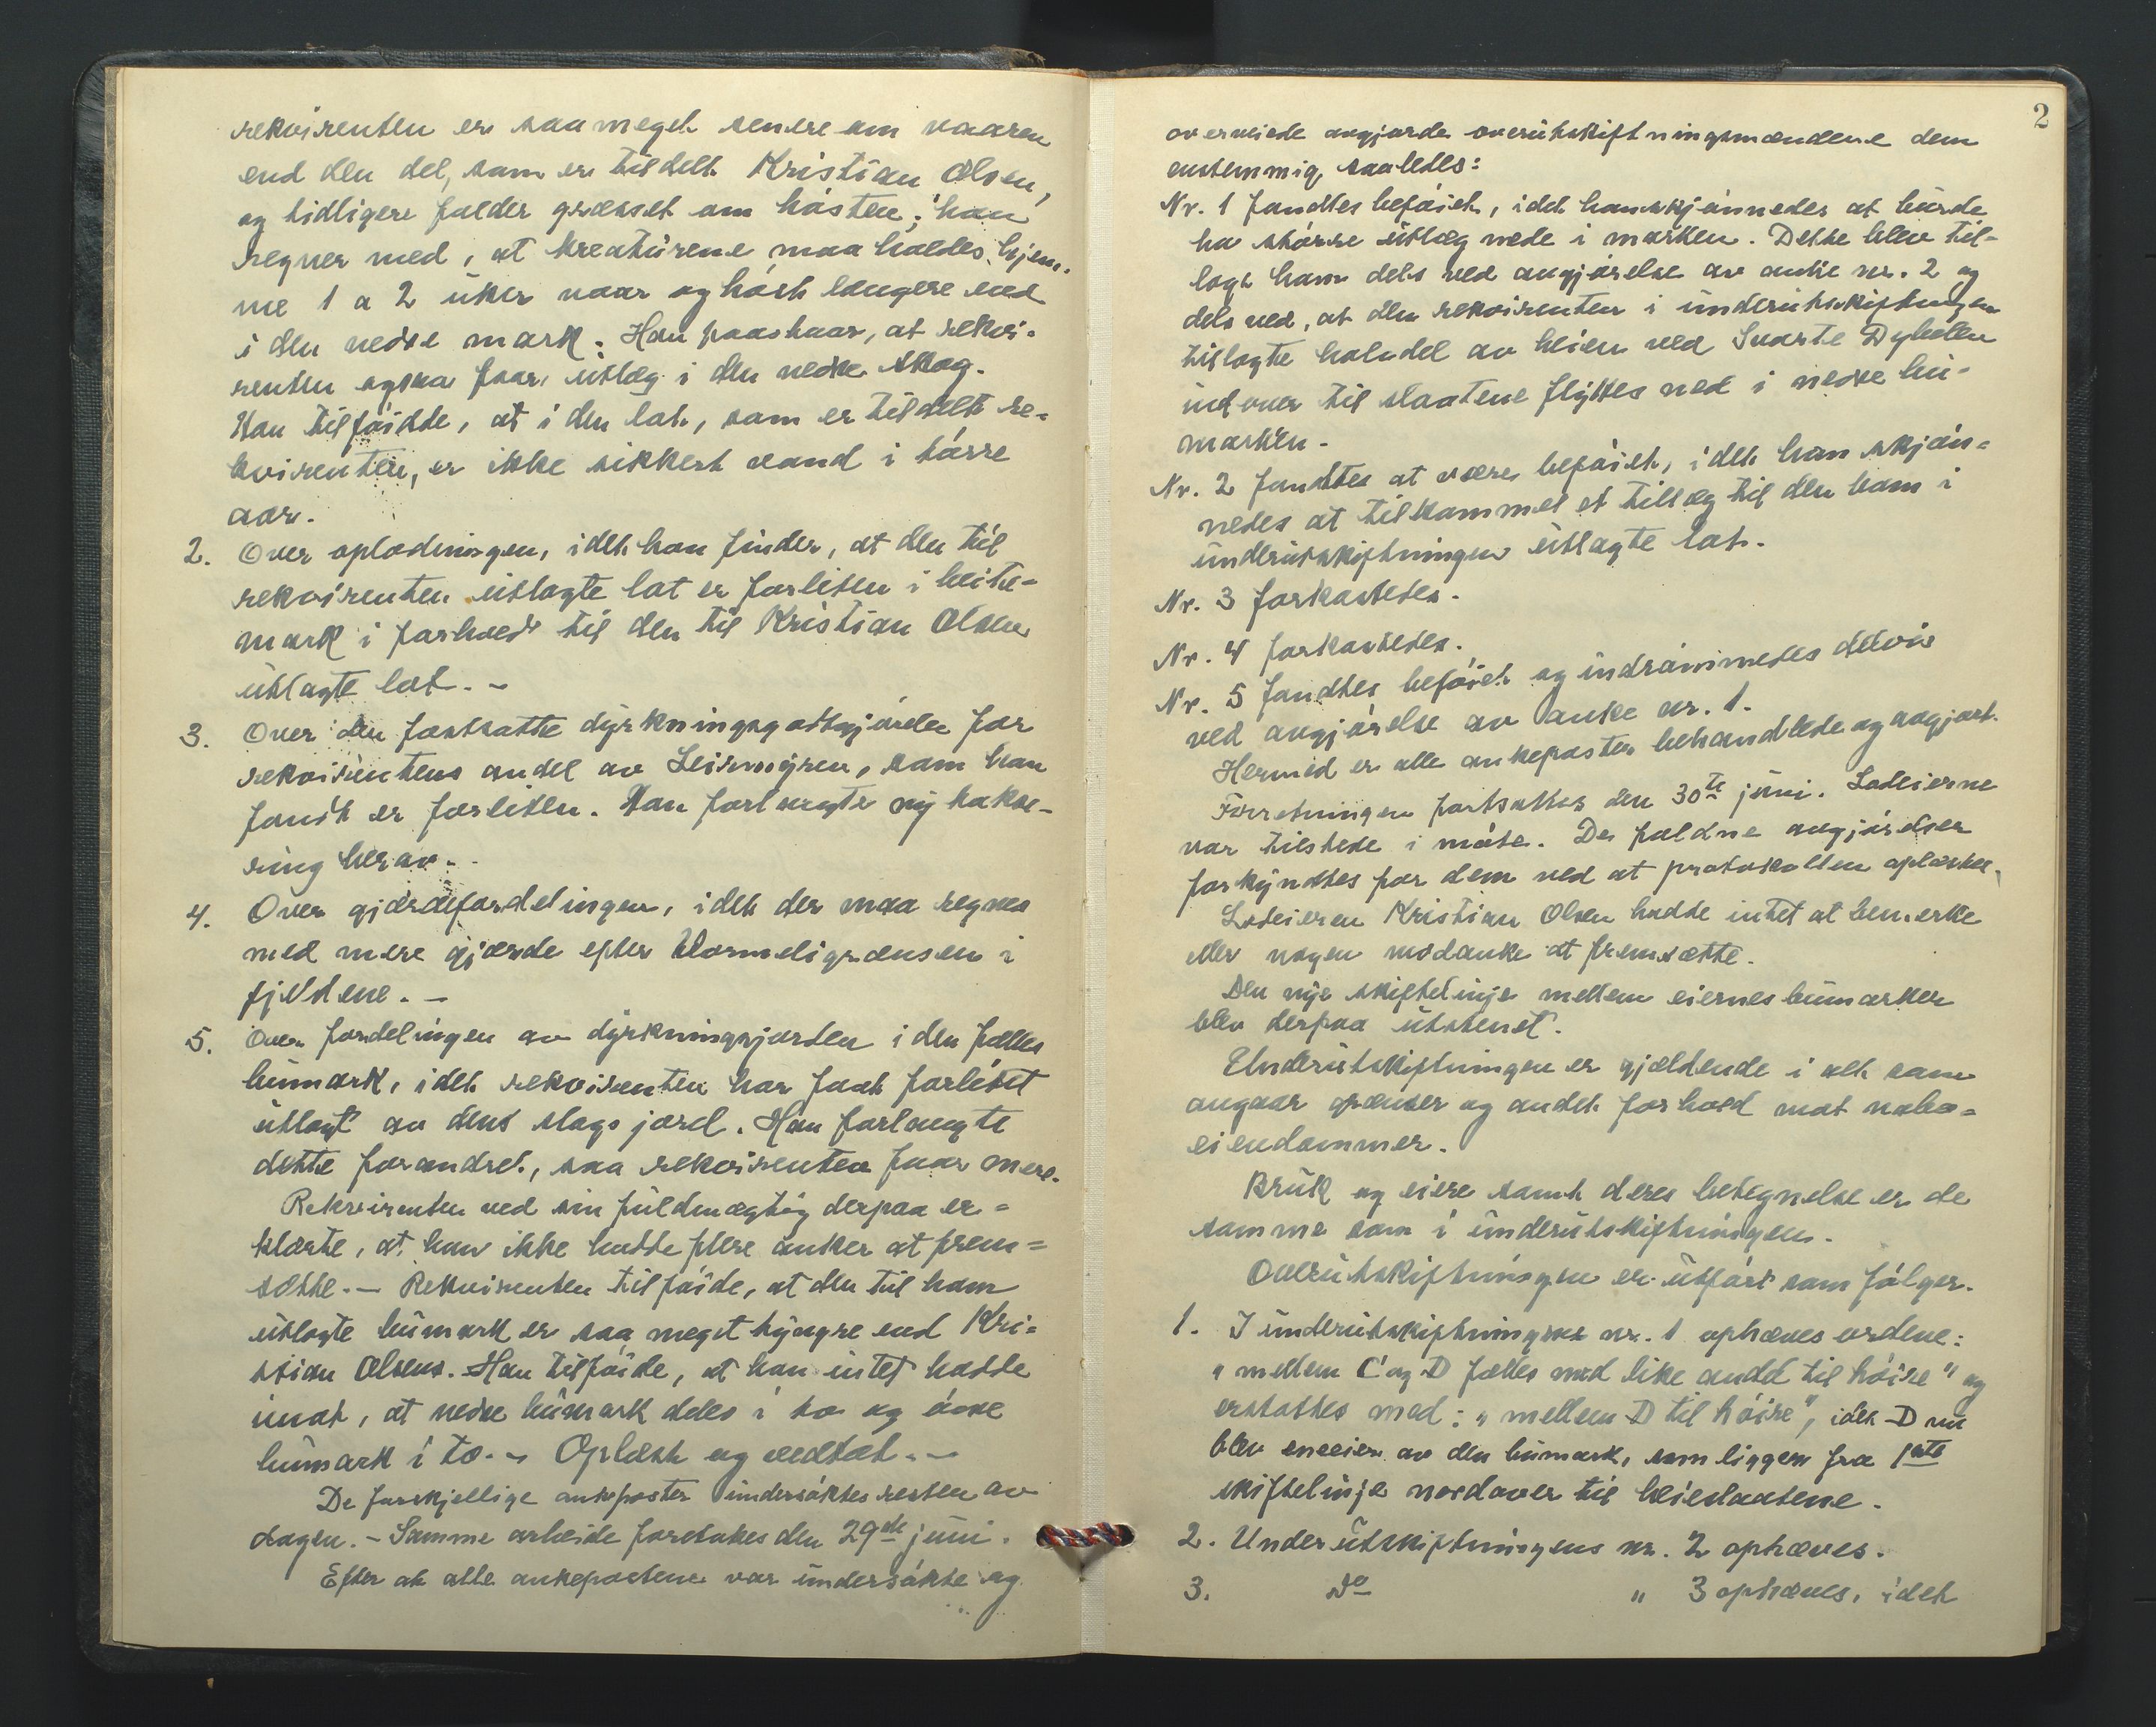 rekvirenten er saa meget senere om vaaren
end den del, som er tildelt Kristian Olsen,
og tidligere falder græsset om hösten; han
regner med, at kreaturene maa holdes hjem-
me 1 a 2 uker vaar og höst længere end
i den nedre mark. Han paastaar, at rekvi-
renten ogsaa faar utlæg i den nedre skog.
Han tilföidde, at i den lot, som er tildelt re-
kvirenten, er ikke sikkert vand i törre
aar.
2. Over oplodningen, idet han finder, at den til
rekvirenten utlagte lot er forliten i beite-
mark i forhold til den til Kristian Olsen
utlagte lot. -
3. Over den fastsatte dyrkningsgodtgjörelse for
rekvirentens andel av Leirmyren, som han
fandt er forliten. Han forlangte ny takse-
ring herav. -
4. Over gjærdefordelingen, idet der maa regnes
med mere gjærde efter Wormeligrænsen i
fjeldene. -
5. Over fordelingen av dyrkningsjorden i den fælles
bumark, idet rekvirenten har faat forlitet
utlagt av dens slags jord. Han forlangte
dette forandret, saa rekvirenten faar mere.
Rekvirenten ved sin fuldmægtig derpaa er-
klærte, at han ikke hadde flere anker at frem-
sætte. - Rekvirenten tilföide, at den til ham
utlagte bumark er saa meget tyngre end Kri-
stian Olsens. Han tilföide, at han intet hadde
imot, at nedre bumark deles i to og övre
bumark i to. - Oplæst og vedtat. -
De forskjellige ankeposter undersöktes resten av
dagen. - Samme arbeide foretokes den 29de juni.
Efter at alle ankepostene var undersökte og
2
overveiede avgjorde overutskiftningsmændene dem
enstemmig saaledes:
Nr. 1 fandtes beföiet, idet han skjönnedes at burde
ha större utlæg nede i marken. Dette blev til-
lagt ham dels ved avgjörelse av anke nr. 2 og
dels ved, at den rekvirenten i underutskiftningen
tillagte halvdel av heien ved Svarte Dyhellen
utover til slaatene flyttes ned i nedre bu-
marken.
Nr. 2 fandtes at være beföiet, idet han skjön-
nedes at tilkommet et tillæg til den ham i
underutskiftningen utlagte lot.
Nr. 3 forkastedes.
Nr. 4 forkastedes.
Nr. 5 fandtes beföiet og indrömmedes delvis
ved avgjörelse av anke nr. 1.
Hermed er alle ankeposter behandlede og avgjort.
Forretningen fortsattes den 30te juni. Lodeierne
var tilstede i möte. De faldne avgjörelser
forkyndtes for dem ved at protokollen oplæstes.
Lodeieren Kristian Olsen hadde intet at bemerke
eller nogen modanke at fremsætte.
Den nye skiftelinje mellem eiernes bumarker
blev derpaa utstenet.
Underutskiftningen er gjældende i alt som
angaar grænser og andet forhold mot nabo-
eiendommer.
Bruk og eiere samt deres betegnelse er de
samme som i underutskiftningen.
Overutskiftningen er utfört som fölger.
1. I underutskiftningens nr. 1 ophæves ordene:
"mellem C og D fælles med like andel til höire" og
erstattes med: "mellem D til höire", idet D nu
blev eneeier av den bumark, som ligger fra 1ste
skiftelinje nordover til heieslaatene.
2. Underutskiftningens nr. 2 ophæves.
3. Do " 3 ophæves, idet